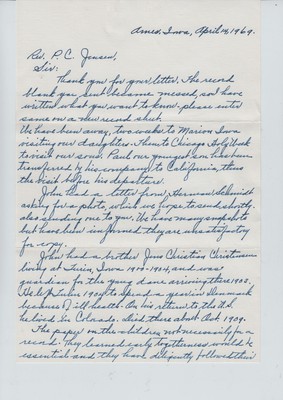 Ames, Iowa, April 14, 1969.
Rev. P. C. Jensen,
Sir:
Thank you for your letter. The record
blank you sent became messed, so I have
written what you want to know. please enter
same on a new record sheet.
We have been away, two weeks to Marion Iowa
visiting our daughter. Then to Chicago Ill, back
to visit our sons. Paul our youngest son has been
transferred by his company to California, thus
the visit before his departure.
John had a letter from Herman Schmidt
asking for a photo, which we hope to send shortly,
also sending one to you. We have many snapshots
but have been informed they are unsatisfactory
for copy.
John had a brother Jens Christian Christensen
living at Turin, Iowa and was
guardian for the young dane arriving there 1902.
He left in 1904 to spend a year in Denmark
because of ill health. On his return to the U.S.
he lived in Colorado. died there about Oct 1909.
The paper on the children not necessarily for a
record. They learned early togetherness would be
essential and they have diligently followed their